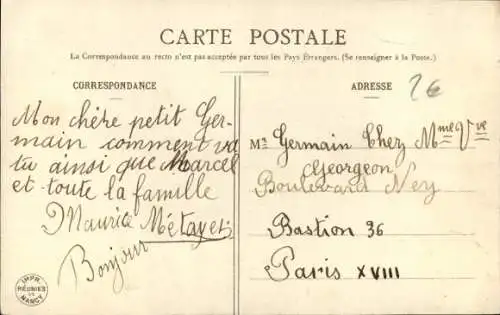 CARTE POSTALE
La Correspondance au recto n'est pas acceptée par tous les Pays Étrangers. (Se renseigner à la Poste.)
CORRESPONDANCE
Mon chère petit Ger-
main comment va
tu ainsi que Marcel
et toute la famille
Maurice Métayer
Bonjour
IMPR.
RÉUNIES
DE
NANCY
ADRESSE
2€
M. Germain Chez Mme Vve
Georgeon
Boulevard Ney
Bastion 36
Paris XVIII